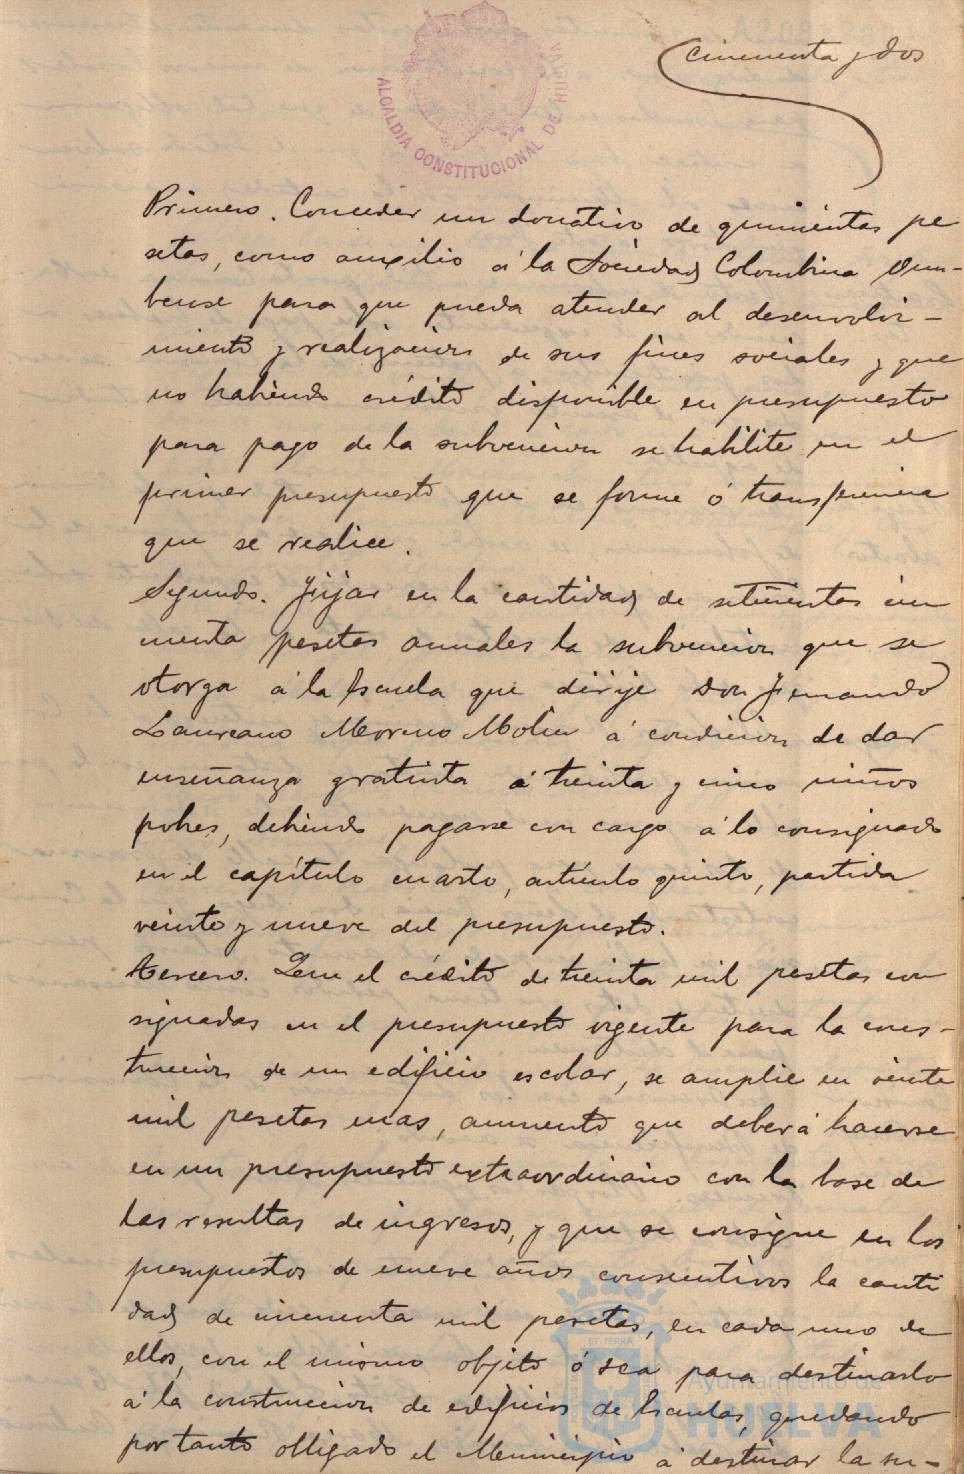 cincuenta y dos
ALCALDIA CONSTITUCIONAL DE HUELVA
Primero. Conceder un donativo de quinientas pe
setas, como auxilio á la Sociedad Colombina Onu-
bense para que pueda atender al desenvolvi-
miento y realizacion de sus fines sociales y que
no habiendo crédito disponible en presupuesto
para pago de la subvencion se habilite en el
primer presupuesto que se forme ó transferencia
que se realice.
Segundo. Fijar en la cantidad de setecientas cin
cuenta pesetas anuales la subvencion que se
otorga á la Escuela que dirije Don Fernando
Laureano Moreno á condicion de dar
enseñanza gratuita á treinta y cinco niños
pobres, debiendo pagarse con cargo á lo consignado
en el capítulo cuarto, artículo quinto, partida
veinte y nueve del presupuesto.
Tercero. Que el crédito de treinta mil pesetas con
signadas en el presupuesto vigente para la cons-
truccion de un edificio escolar, se amplie en veinte
mil pesetas mas, aumento que deberá hacerse
en un presupuesto extraordinario con la base de
las resultas de ingresos, y que se consigne en los
presupuestos de nueve años consecutivos la canti
dad de cincuenta mil pesetas, en cada uno de
ellos, con el mismo objeto ó sea para destinarlo
á la construccion de edificios de Escuelas, quedando
por tanto obligado el Municipio á destinar la su-
Ayuntamiento de
HUELVA